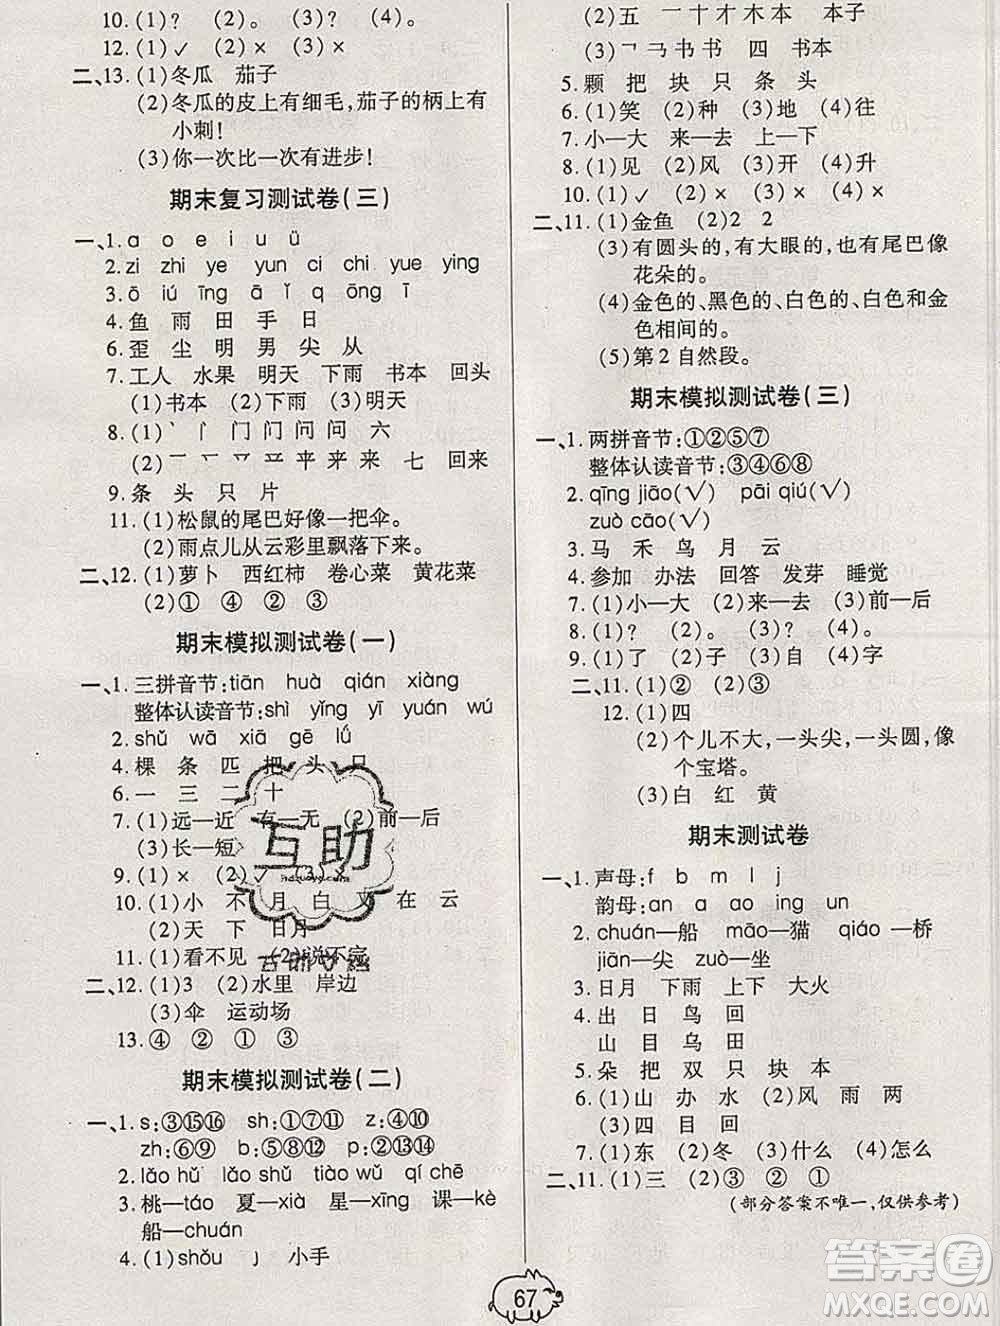 10. (1)? (2)。 (3)? (4)。
12. (1)✓ (2)× (3)×
二、13. (1)冬瓜 茄子
(2)冬瓜的皮上有细毛,茄子的柄上有
小刺!
(3)你一次比一次有进步!
期末复习测试卷(三)
一、1. ɑ o e i u ü
2. zi zhi ye yun ci chi yue ying
3. ō iú īng ā ǐ q ōng ī
4. 鱼 雨 田 手 日
6. 歪 尘 明 男 尖 从
7. 工人 水果 明天 下雨 书本 回头
(1)书本 (2)下雨 (3)明天
9. 条 头 只 片
11. (1)松鼠的尾巴好像一把伞。
(2)雨点儿从云彩里飘落下来。
二、12. (1)萝卜 西红柿 卷心菜 黄花菜
(2)① ④ ② ③
期末模拟测试卷(一)
一、1. 三拼音节:tiān huà qián xiàng
整体认读音节:shì yǐng yī yuán wú
2. shǔ wā xiā gē lǘ
4. 棵 条 匹 把 头 只
6. 一 三 二 十
7. (1)远—近 有—无 (2)前—后
(3)长—短
9. (1)× (2)✓ (3)×
10. (1)小 不 月 白 文 在 云
(2)天 下 日月
11. (1)看不见 (2)说不完
二、12. (1)3 (2)水里 岸边
(3)伞 运动场
13. ④ ② ① ③
期末模拟测试卷(二)
一、1. s:③⑮⑯ sh:①⑦⑪ z:④⑩
zh:⑥⑨ b:⑤⑧ p:②⑫⑬⑭
2. lǎo hǔ lǎo shǔ tiào wǔ qí chē
3. 桃—táo 夏—xià 星—xīng 课—kè
船—chuán
4. (1)shǒu 亅 小手
(2)五 一 十 才 木 本 本子
(3)乛 马 书 书 四 书本
5. 颗 把 块 只 条 头
6. (1)笑 (2)种 (3)地 (4)往
7. 小—大 来—去 上—下
8. (1)见 (2)风 (3)开 (4)升
10. (1)✓ (2)× (3)× (4)×
二、11. (1)金鱼 (2)2 2
(3)有圆头的,有大眼的,也有尾巴像
花朵的。
(4)金色的、黑色的、白色的、白色和金
色相间的。
(5)第2自然段。
期末模拟测试卷(三)
一、1. 两拼音节:①②⑤⑦
整体认读音节:③④⑥⑧
2. qīng jiāo(✓) pāi qiú(✓)
zuò cāo(✓)
3. 马 禾 鸟 月 云
4. 参加 办法 回答 发芽 睡觉
7. (1)小—大 (2)来—去 (3)前—后
8. (1)? (2)。 (3)? (4)。
9. (1)了 (2)子 (3)自 (4)字
二、11. (1)② (2)③
12. (1)四
(2)个儿不大,一头尖,一头圆,像
个宝塔。
(3)白 红 黄
期末测试卷
一、1. 声母:f b m l j
韵母:an a ao ing un
2. chuán—船 māo—猫 qiáo—桥
jiān—尖 zuò—坐
3. 日月 下雨 上下 大火
4. 出 日 鸟 回
山 目 乌 田
5. 朵 把 双 只 块 本
6. (1)山 办 水 (2)风 雨 两
(3)四 目 回
7. (1)东 (2)冬 (3)什么 (4)怎么
二、11. (1)三 (2)③ ② ①
(部分答案不唯一,仅供参考)
67
互助
答案圈
MXQE.COM